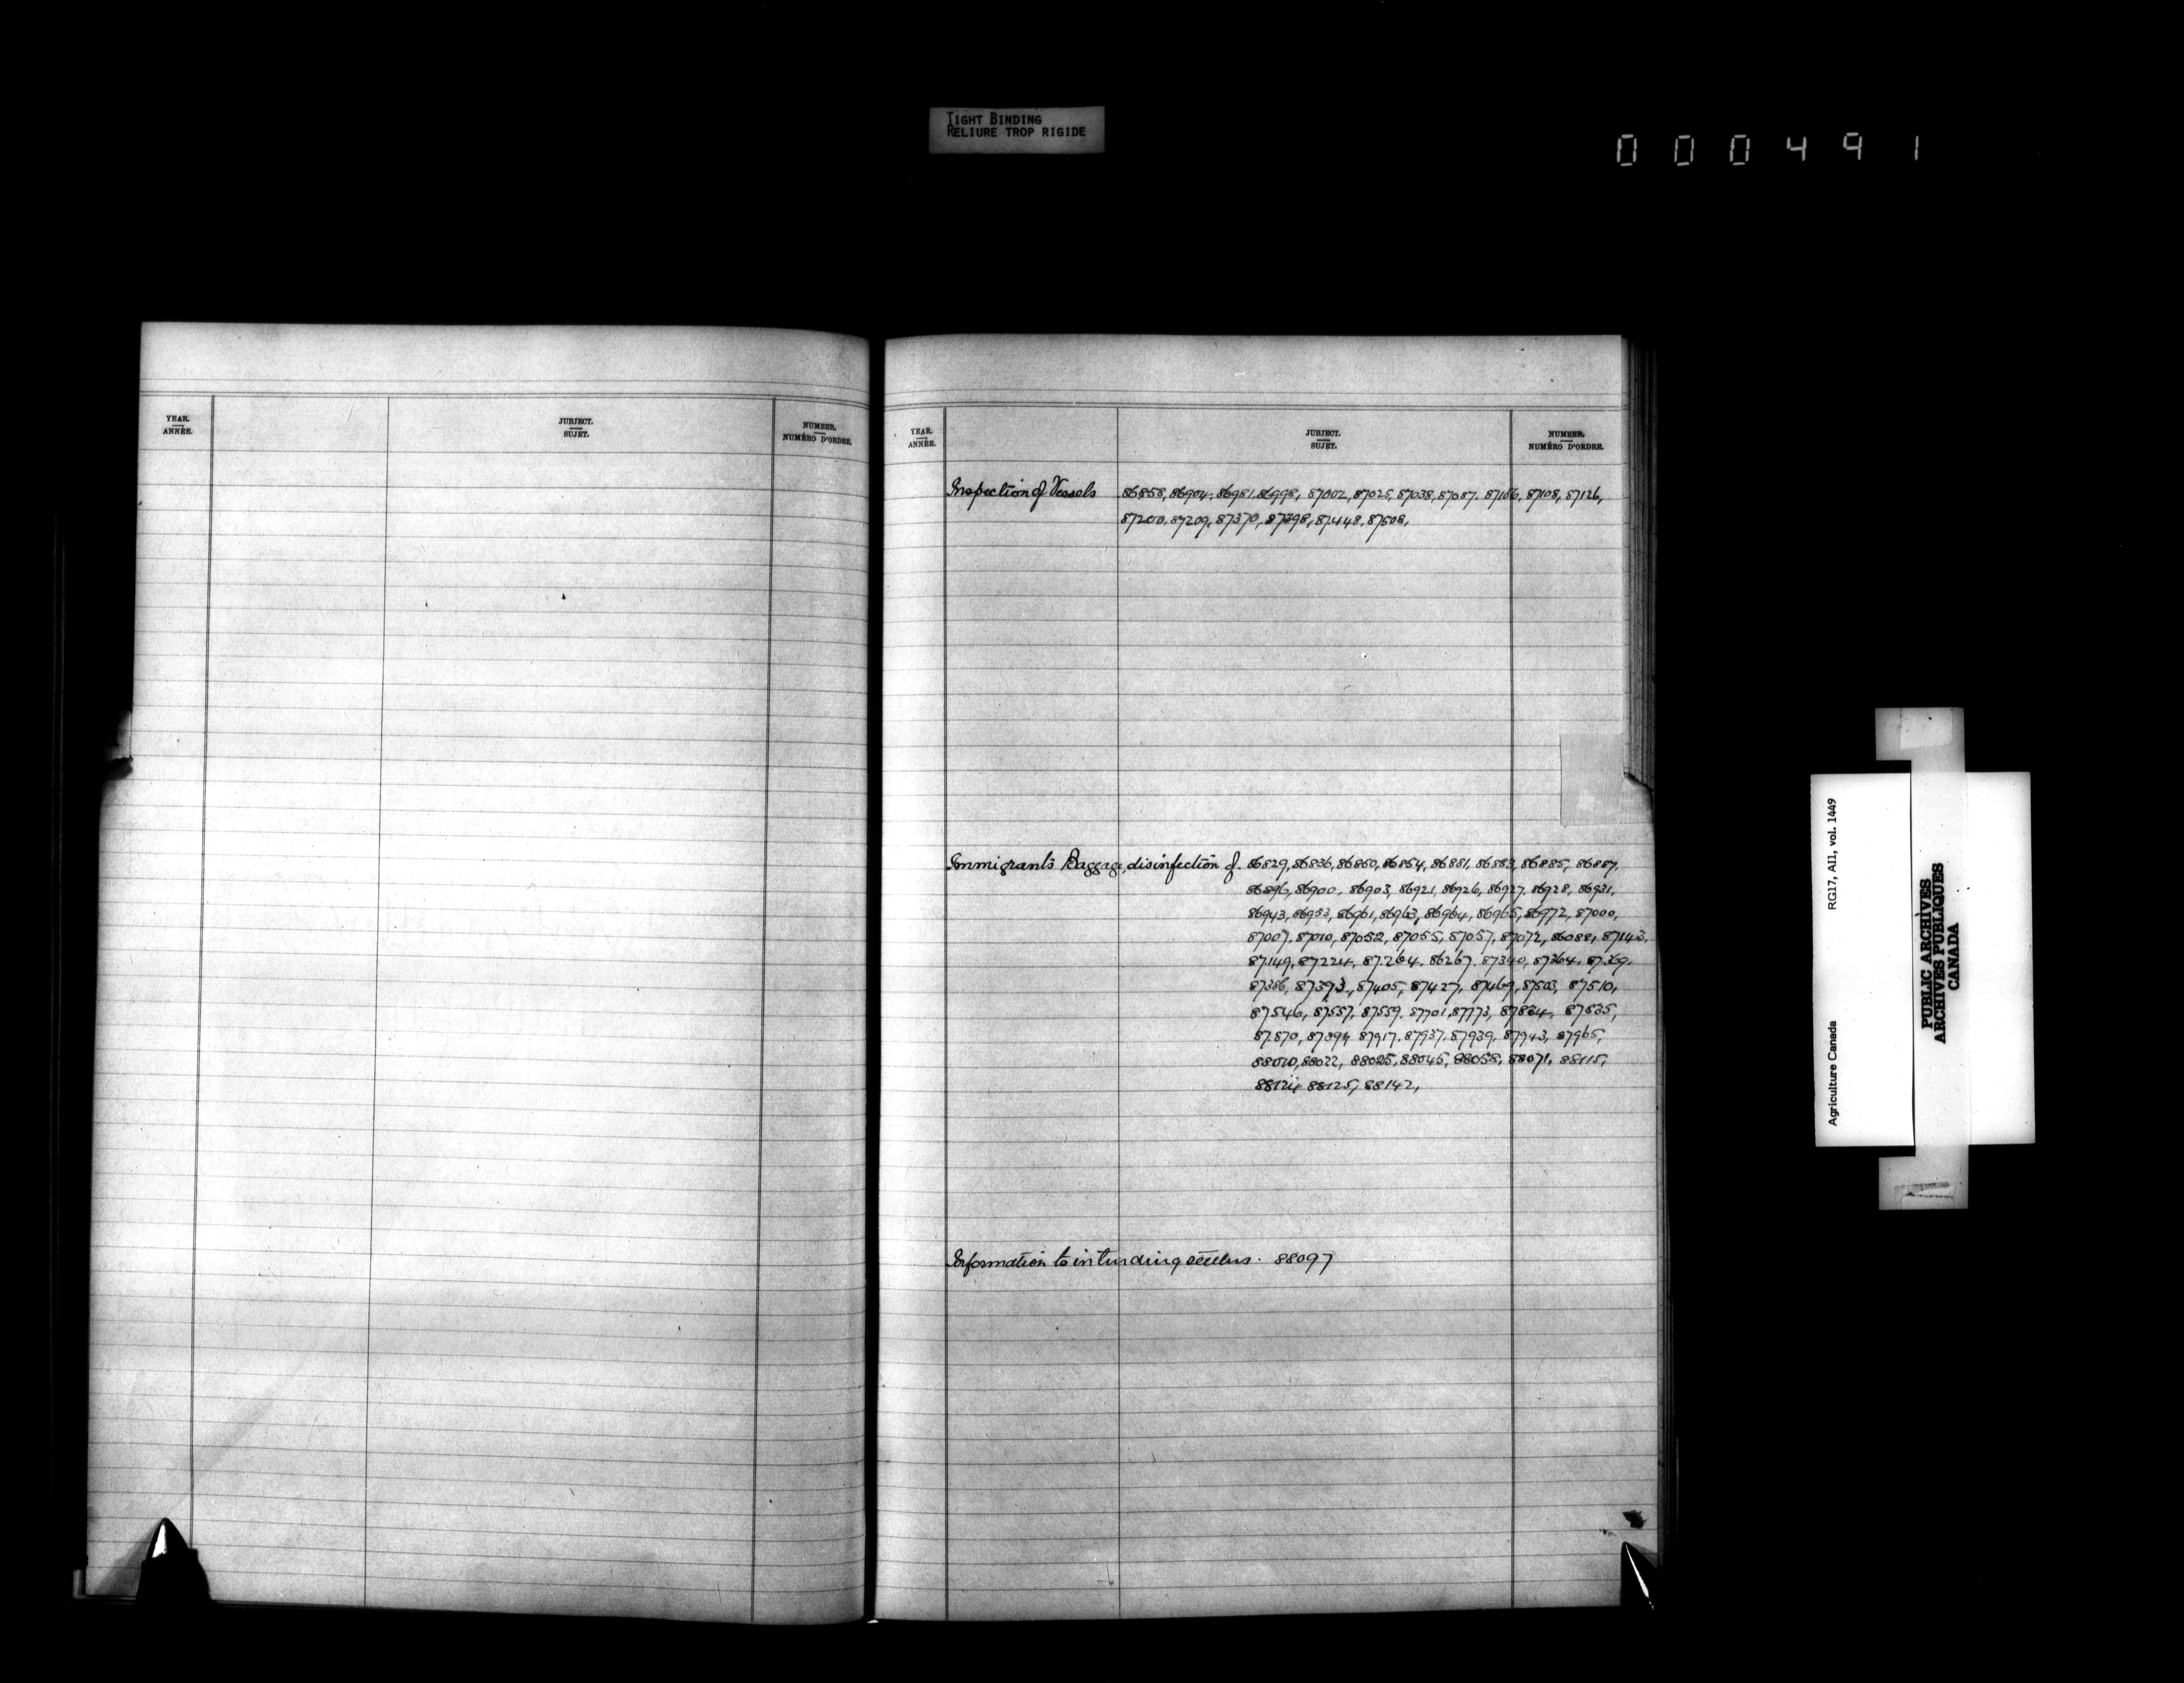 TIGHT BINDING
RELIURE TROP RIGIDE
000491
YEAR.
ANNÉE.
JUBJECT.
SUJET.
NUMBER.
NUMÉRO D'ORDRE.
YEAR.
ANNÉE.
JUBJECT.
SUJET.
NUMBER.
NUMÉRO D'ORDRE.
Inspection of Vessels 86858, 86904, 86981, 86998, 87002, 87025, 87038, 87087. 87106, 87108, 87126,
87200, 87209, 87370, 87398, 87448, 87508,
Immigrants Baggage, disinfection of. 86829, 86836, 86860, 86864, 86881, 86883, 86885, 86887,
86896, 86900, 86903, 86921, 86926, 86927, 86928, 86931,
86943, 86953, 86961, 86963, 86964, 86965, 86972, 87000,
87007, 87010, 87052, 87055, 87057, 87072, 86088, 87143,
87149, 87224, 87264, 86267, 87340, 87364, 87369,
87386, 87393, 87405, 87427, 87469, 87503, 87510,
87546, 87557, 87559, 87701, 87773, 87834, 87835,
87870, 87894, 87917, 87937, 87939, 87943, 87965,
88010, 88022, 88025, 88045, 88058, 88071, 88115,
88124, 88125, 88142,
Information to intending settlers. 88097
Agriculture Canada RG17, AII, vol. 1449
PUBLIC ARCHIVES
ARCHIVES PUBLIQUES
CANADA